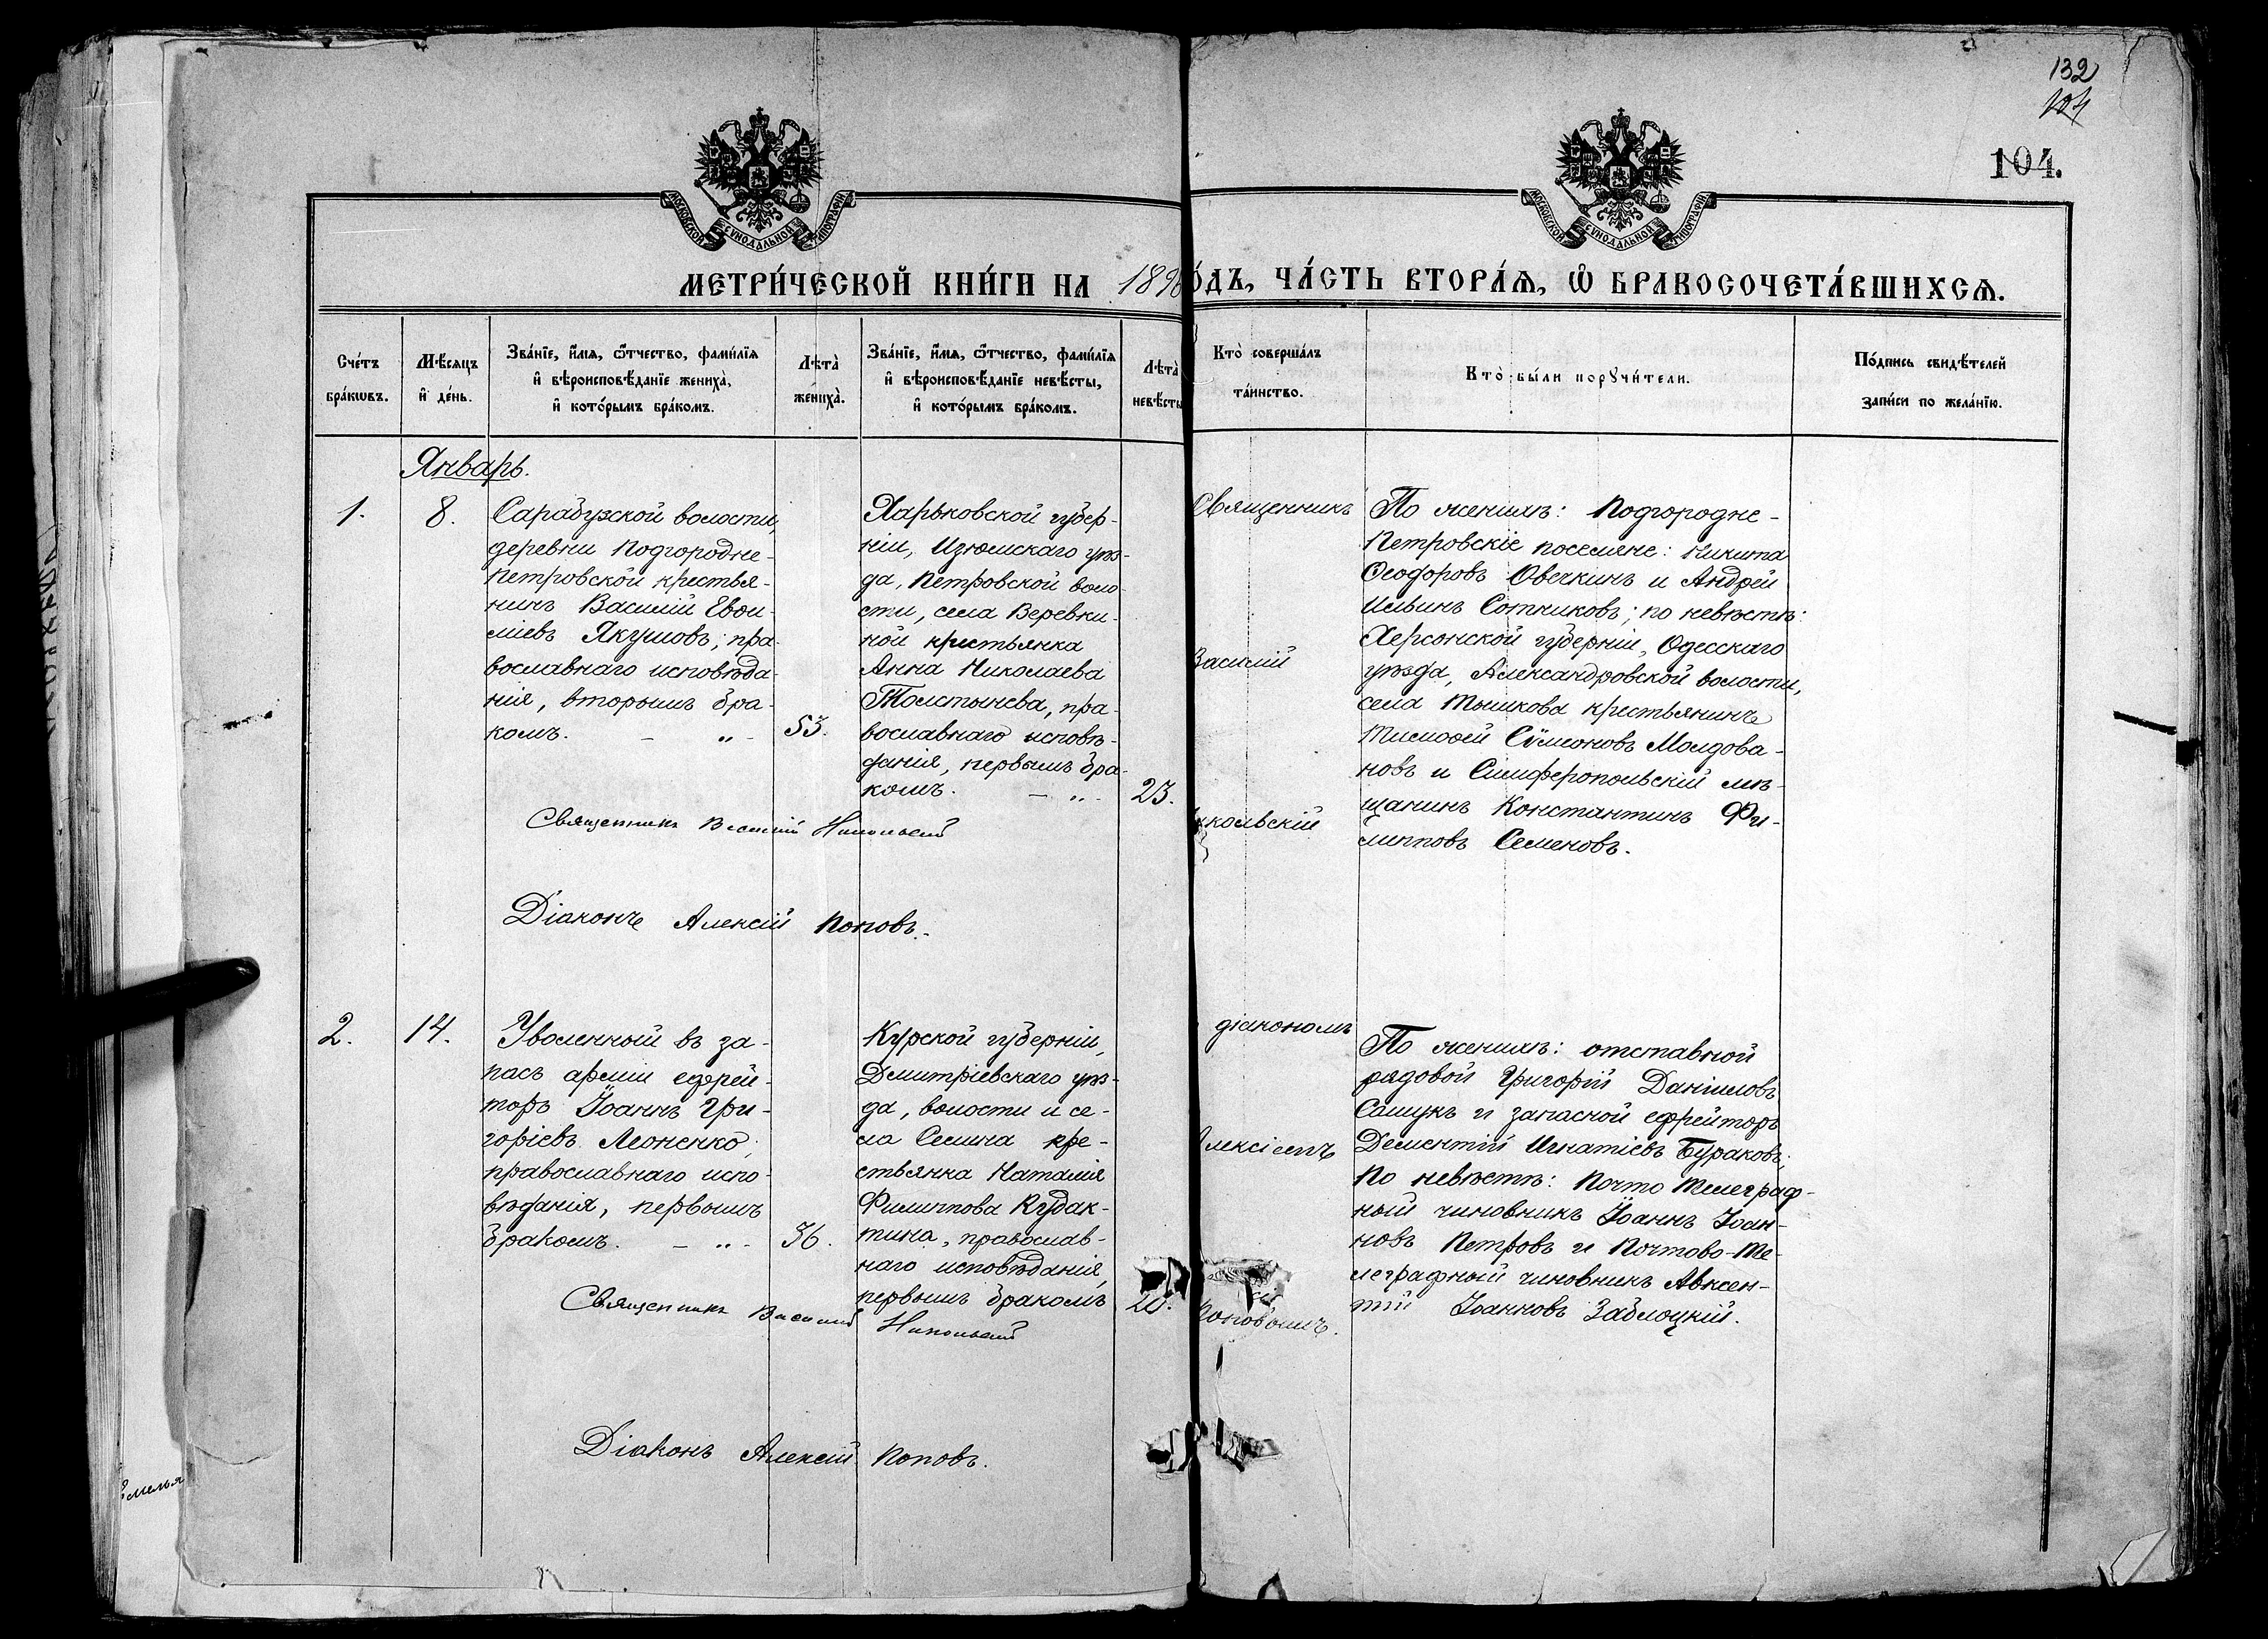 132
104
104.
МОСКОВСКОЙ СѴНОДАЛЬНОЙ ТИПОГРАФІИ
МОСКОВСКОЙ СѴНОДАЛЬНОЙ ТИПОГРАФІИ
МЕТРИ́ЧЕСКОЙ КНИ́ГИ НА 189
О́ДЪ, ЧА́СТЬ ВТОРА́Ѧ, Ѡ҆ БРАКОСОЧЕТА́ВШИХСѦ.
Сче́тъ
бра́кѡвъ.
Мѣ́сѧцъ
и҆ де́нь.
Зва́нїе, и҆́мѧ, ѻ҆́тчество, фами́лїѧ
и҆ вѣроисповѣ́данїе жениха̀,
и҆ кото́рымъ бра́комъ.
Лѣта̀
жениха̀.
Зва́нїе, и҆́мѧ, ѻ҆́тчество, фами́лїѧ
и҆ вѣроисповѣ́данїе невѣ́сты,
и҆ кото́рымъ бра́комъ.
Лѣта̀
невѣ́сты
Кто̀ соверша́лъ
та́инство.
Кто̀ бы́ли порꙋчи́тели.
По́дпись свидѣ́телей
за́писи по жела́нїю.
Январь.
1.
8.
Сарабузской волости,
деревни Подгородне-
Петровской крестья-
нинъ Василій
Якушовъ; пра-
вославнаго исповѣда-
нія, вторымъ бра-
комъ. — „ —
53.
Харьковской губер-
ніи, Изюмскаго уѣз-
да, Петровской воло-
сти, села Веревки-
ной крестьянка
Анна Николаева
Толстынева, пра-
вославнаго исповѣ-
данія, первымъ бра-
комъ. — „ —
23.
Священникъ
Василій
икольскій
По женихѣ: Подгородне-
Петровскіе поселяне: Никита
Ѳеодоровъ Овечкинъ и Андрей
Ильинъ Сотниковъ; по невѣстѣ:
Херсонской губерніи, Одесскаго
уѣзда, Александровской волости,
села Тышкова крестьянинъ
Тимоѳей Сѵмеоновъ Молдова-
новъ и Симферопольскій мѣ-
щанинъ Константинъ Фи-
липповъ Семеновъ.
Священникъ Василій Никольскій
Діаконъ Алексій Поповъ.
2.
14.
Уволенный въ за-
пасъ арміи ефрей-
торъ Іоаннъ Гри-
горіевъ Леоненко,
православнаго испо-
вѣданія, первымъ
бракомъ. — „ —
36.
Курской губерніи,
Дмитріевскаго уѣз-
да, волости и се-
ла Селина кре-
стьянка Наталія
Филиппова Кудак-
тина, православ-
наго исповѣданія,
первымъ бракомъ
діакономъ
Алексіемъ
Поповымъ.
По женихѣ: отставной
рядовой Григорій Даніиловъ
Сащукъ и запасной ефрейторъ
Дементій Игнатіевъ Бураковъ;
по невѣстѣ: Почто Телеграф-
ный чиновникъ Іоаннъ Іоан-
новъ Петровъ и Почтово-Те-
леграфный чиновникъ Авксен-
тій Іоанновъ Заблоцкій.
Священникъ Василій
Никольскій
Діаконъ Алексій Поповъ.